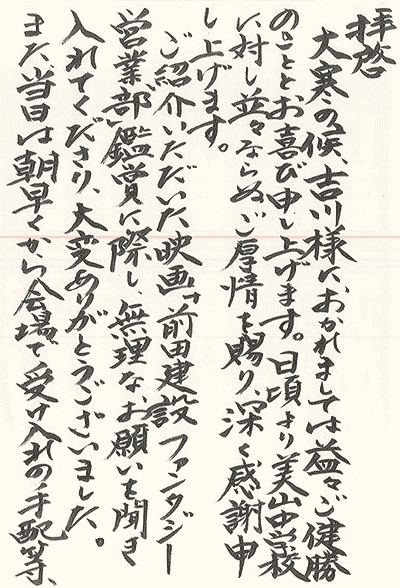 拝啓
大寒の候、吉川様におかれましては益々ご健勝
のこととお喜び申し上げます。日頃より美山中学校
に対し並々ならぬご厚情を賜り、深く感謝申
し上げます。
ご紹介いただいた映画「前田建設ファンタジー
営業部」鑑賞に際し、無理なお願いを聞き
入れてくださり、大変ありがとうございました。
また当日は朝早くから会場で受け入れの手配等、